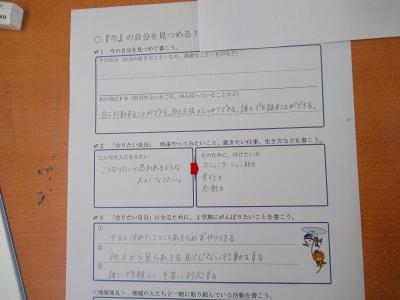 ○『今』の自分を見つめる！
1 今の自分を見つめて書こう。
今の自分（自分の好きなこと・もの、得意なこと・ものなど）
私の自己ＰＲ（自分のよいところ、がんばっていることなど）
自ら行動することができる。自己主張をしっかりできる。誰とでも話すことができる。
2 「なりたい自分」 将来やってみたいこと、就きたい仕事、生き方などを書こう。
こんな大人になりたい
こうなりたいと思われるような
大人になりたい。
そのために、付けたい力
コミュニケーション能力
実行力
忍耐力
3 「なりたい自分」になるために、１学期にがんばりたいことを書こう。
①
やると決めたことはあきらめずやりとげる
②
他人から見られてもはじない行動をする
③
誰にでも親しく、平等に対応する
＜地域発見＞ 地域の人たちと一緒に取り組んでいる活動を書こう。